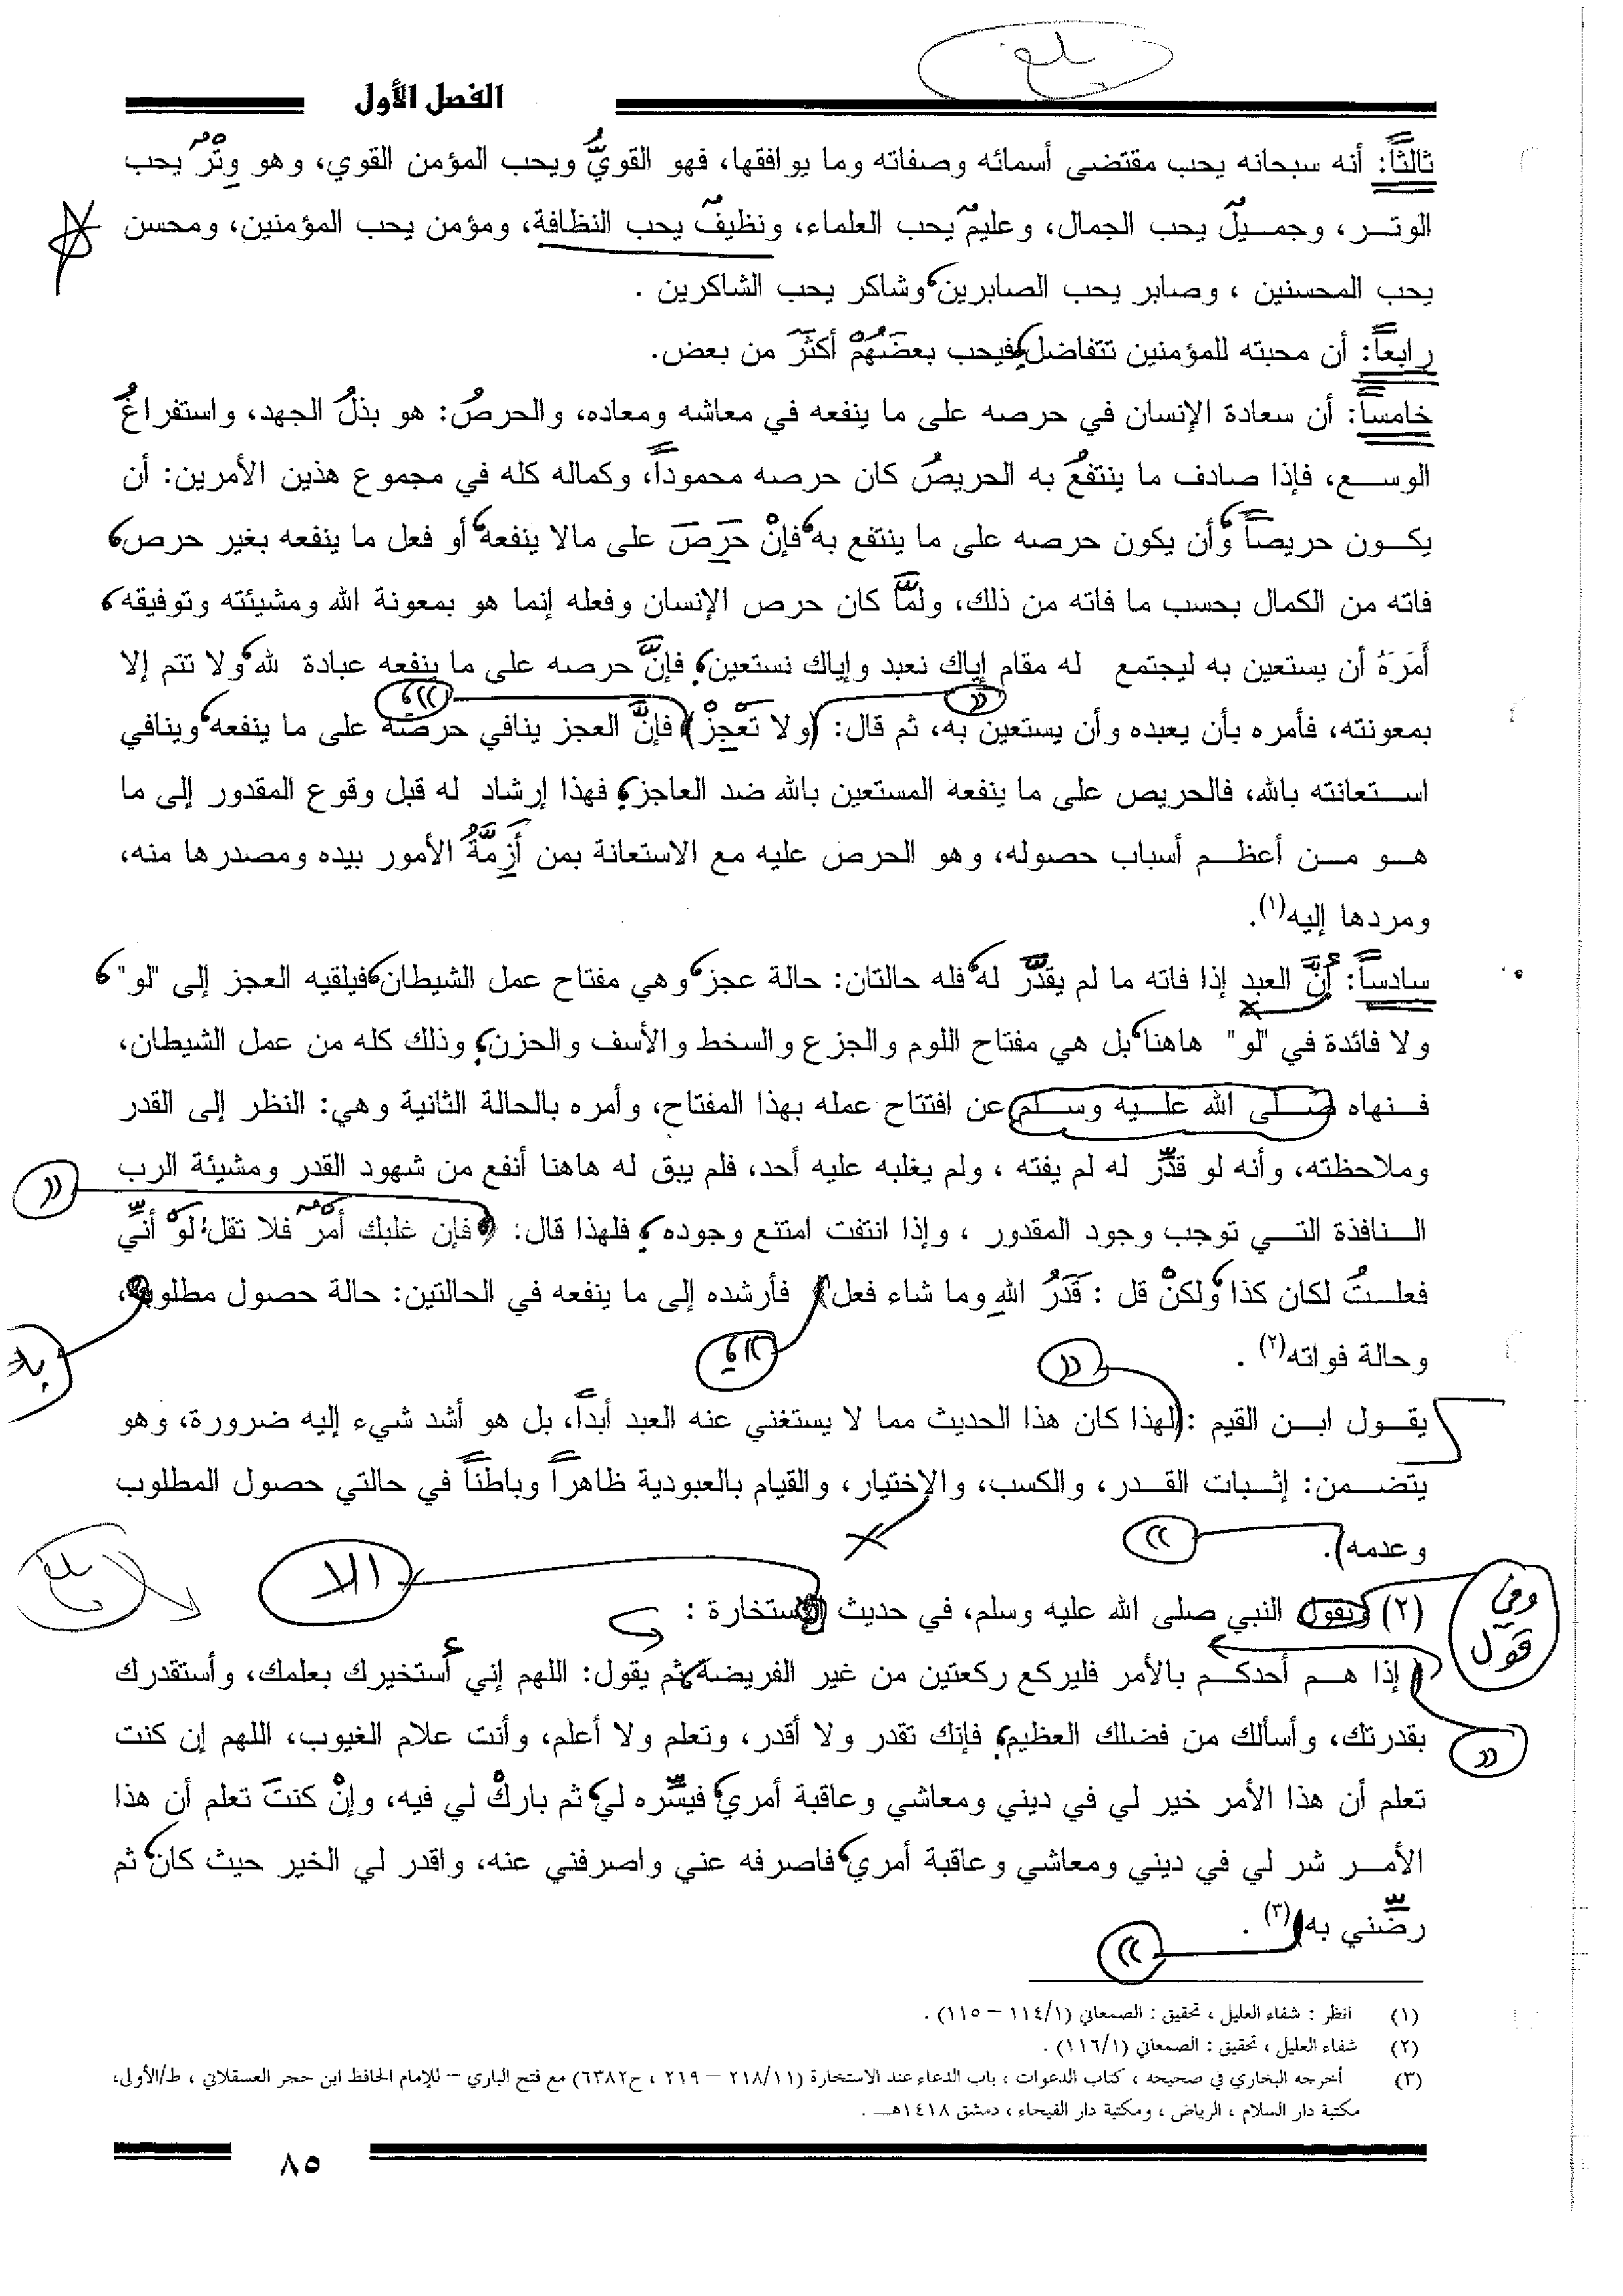 بلغ
الفصل الأول
ثالثاً: أنه سبحانه يحب مقتضى أسمائه وصفاته وما يوافقها، فهو القويُّ ويحب المؤمن القوي، وهو وِتْرٌ يحب
الوتر، وجميلٌ يحب الجمال، وعليمٌ يحب العلماء، ونظيفٌ يحب النظافة، ومؤمن يحب المؤمنين، ومحسن
يحب المحسنين ، وصابر يحب الصابرين، وشاكر يحب الشاكرين .
رابعاً: أن محبته للمؤمنين تتفاضل؛ فيحب بعضَهُمْ أكثَرَ من بعض.
خامساً: أن سعادة الإنسان في حرصه على ما ينفعه في معاشه ومعاده، والحرصُ: هو بذلُ الجهد، واستفراغُ
الوسع، فإذا صادف ما ينتفعُ به الحريصُ كان حرصه محموداً، وكماله كله في مجموع هذين الأمرين: أن
يكون حريصاً، وأن يكون حرصه على ما ينتفع به، فإنْ حَرِصَ على مالا ينفعه، أو فعل ما ينفعه بغير حرص،
فاته من الكمال بحسب ما فاته من ذلك، ولمَّا كان حرص الإنسان وفعله إنما هو بمعونة الله ومشيئته وتوفيقه،
أَمَرَهُ أن يستعين به ليجتمع له مقام إياك نعبد وإياك نستعين؛ فإنَّ حرصه على ما ينفعه عبادة لله، ولا تتم إلا
بمعونته، فأمره بأن يعبده وأن يستعين به، ثم قال: (ولا تَعْجِزْ) فإنَّ العجز ينافي حرصه على ما ينفعه، وينافي
استعانته بالله، فالحريص على ما ينفعه المستعين بالله ضد العاجز؛ فهذا إرشاد له قبل وقوع المقدور إلى ما
هو من أعظم أسباب حصوله، وهو الحرص عليه مع الاستعانة بمن أَزِمَّةُ الأمور بيده ومصدرها منه،
ومردها إليه(١).
سادساً: أنَّ العبد إذا فاته ما لم يقدَّر له، فله حالتان: حالة عجز، وهي مفتاح عمل الشيطان، فيلقيه العجز إلى "لو"،
ولا فائدة في "لو" هاهنا، بل هي مفتاح اللوم والجزع والسخط والأسف والحزن؛ وذلك كله من عمل الشيطان،
فنهاه صلى الله عليه وسلم عن افتتاح عمله بهذا المفتاح، وأمره بالحالة الثانية وهي: النظر إلى القدر
وملاحظته، وأنه لو قدِّر له لم يفته ، ولم يغلبه عليه أحد، فلم يبق له هاهنا أنفع من شهود القدر ومشيئة الرب
النافذة التي توجب وجود المقدور ، وإذا انتفت امتنع وجوده؛ فلهذا قال: (فإن غلبك أمرٌ فلا تقل: لو أنِّي
فعلتُ لكان كذا، ولكنْ قل : قَدَرُ اللهِ وما شاء فعل) فأرشده إلى ما ينفعه في الحالتين: حالة حصول مطلوبه،
وحالة فواته(٢) .
يقول ابن القيم :(لهذا كان هذا الحديث مما لا يستغني عنه العبد أبداً، بل هو أشد شيء إليه ضرورة، وهو
يتضمن: إثبات القدر، والكسب، والإختيار، والقيام بالعبودية ظاهراً وباطناً في حالتي حصول المطلوب
وعدمه).
بلغ
الا
(٢) يقول النبي صلى الله عليه وسلم، في حديث الاستخارة :
وفي
قول
(إذا هم أحدكم بالأمر فليركع ركعتين من غير الفريضة، ثم يقول: اللهم إني أستخيرك بعلمك، وأستقدرك
بقدرتك، وأسألك من فضلك العظيم؛ فإنك تقدر ولا أقدر، وتعلم ولا أعلم، وأنت علام الغيوب، اللهم إن كنت
تعلم أن هذا الأمر خير لي في ديني ومعاشي وعاقبة أمري، فيسِّره لي، ثم باركْ لي فيه، وإنْ كنتَ تعلم أن هذا
الأمر شر لي في ديني ومعاشي وعاقبة أمري، فاصرفه عني واصرفني عنه، واقدر لي الخير حيث كان، ثم
رضِّني به)(٣) .
(١) انظر : شفاء العليل ، تحقيق : الصمعاني (١/١١٤ – ١١٥) .
(٢) شفاء العليل ، تحقيق : الصمعاني (١/١١٦) .
(٣) أخرجه البخاري في صحيحه ، كتاب الدعوات ، باب الدعاء عند الاستخارة (١١/٢١٨ – ٢١٩ ، ح٦٣٨٢) مع فتح الباري – للإمام الحافظ ابن حجر العسقلاني ، ط/الأولى،
مكتبة دار السلام ، الرياض ، ومكتبة دار الفيحاء ، دمشق ١٤١٨هـ .
٨٥